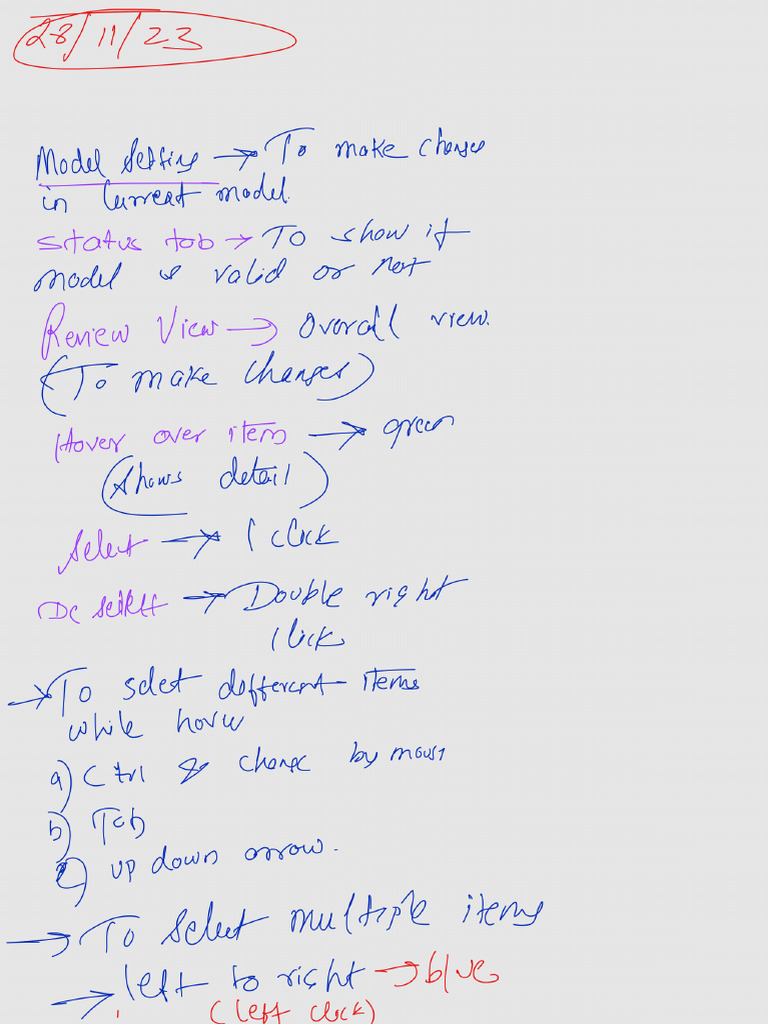 28/11/23
Model Setting → To make changes
in Current model.
Status tab → To show if
model is valid or not
Review View → Overall view.
(To make changes)
Hover over item → green
(shows detail)
Select → 1 click
De select → Double right
click
→ To select different items
while hover
a) Ctrl & change by mouse
b) Tab
c) up down arrow.
→ To select multiple items
→ left to right → blue
(left click)